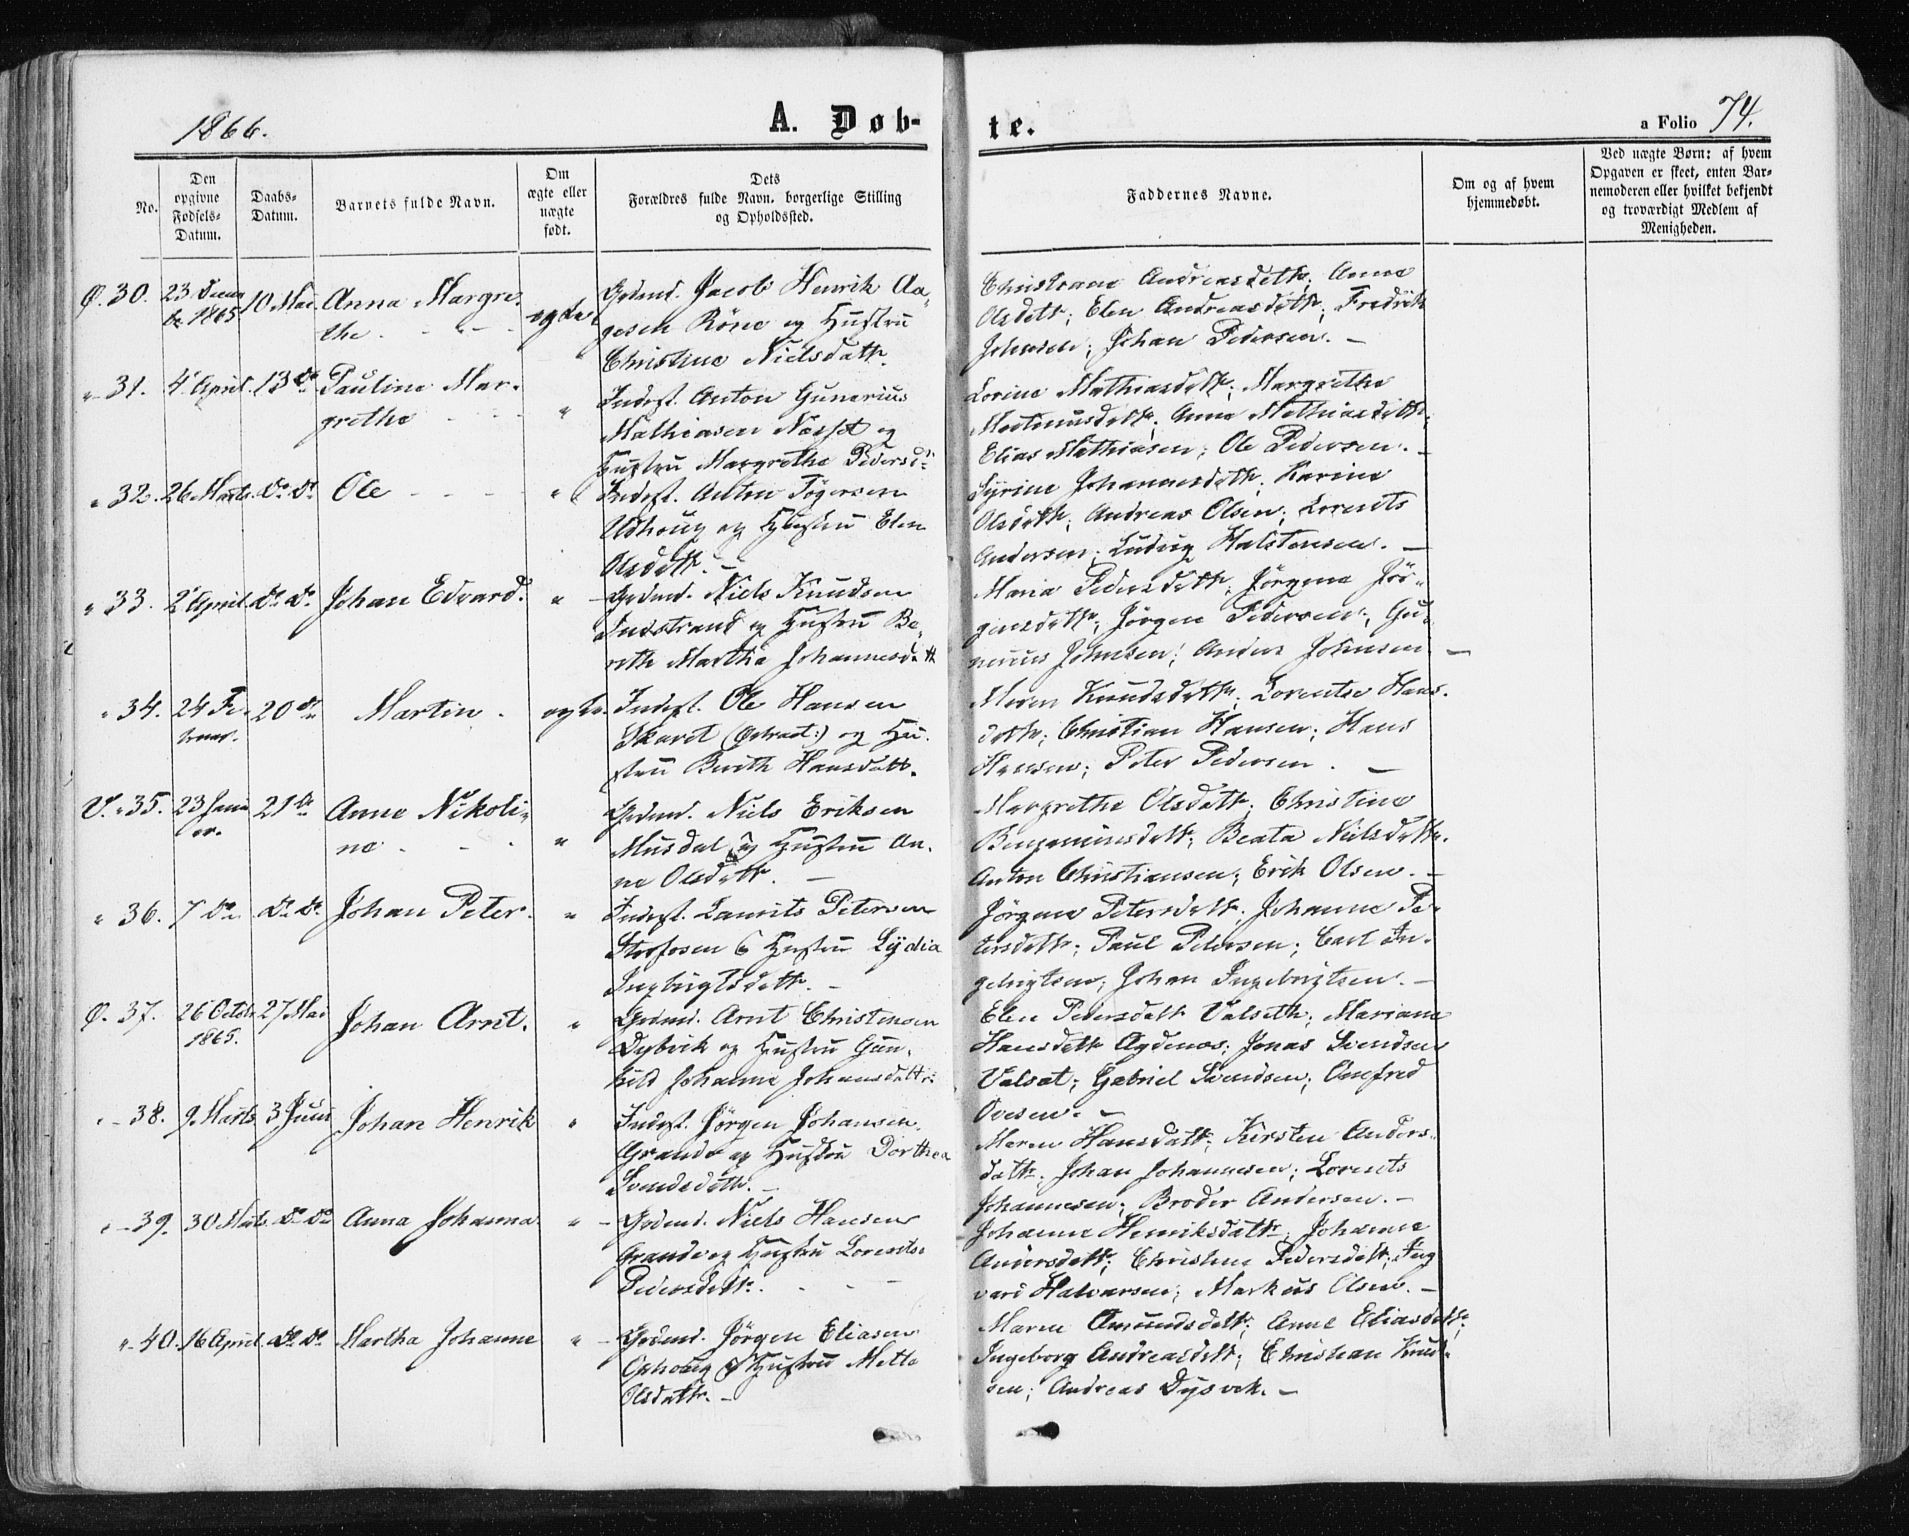 1866.
A. Døb-
te.
a Folio 74.
No.
Den
opgivne
Fødsels-
Datum.
Daabs-
Datum.
Barnets fulde Navn.
Om
ægte eller
uægte
født.
Dets
Forældres fulde Navn, borgerlige Stilling
og Opholdssted.
Faddernes Navne.
Om og af hvem
hjemmedøbt.
Ved uægte Børn: af hvem
Opgaven er skeet, enten Bar-
nemoderen eller hvilket bekjendt
og troværdigt Medlem af
Menigheden.
Ø. 30. 23 Decem
br. 1865 10 Mai Anna Margre-
the. ægte
Gdmd. Jacob Henrik Aa-
gesen Röne og Hustru
Christine Nielsdatt.
Christiane Andreasdatt; Anne
Olsdatt; Elen Andreasdatt; Fredrik
Johnsen; Johan Pedersen. -
" 31. 4 April. 13 do Pauline Mar-
grethe "
Indst. Anton Gunerius
Mathiasen Næsset og
Hustru Margrethe Pedersd.
Lorine Mathiasdatt; Margrethe
Martinusdatt; Anne Mathiasdatt;
Elias Mathiasen; Ole Pedersen. -
" 32. 26 Marts. do do Ole "
Indst. Anton Tögersen
Udhoug og Hustru Elen
Olsdatt. -
Syrine Johannesdatt; Karine
Olsdatt; Andreas Olsen; Lorents
Andersen; Ludvig Halstensen. -
" 33. 2 April. do do Johan Edvard. "
Gdmd. Niels Knudsen
Indstrand og Hustru Be-
reth Martha Johannesdatt
Maria Pedersdatt; Jörgine Jör-
ginsdatt; Jörgen Pedersen; Gu-
nerius Johnsen; Anders Johnsen -
" 34. 24 Fe-
bruar. 20 do Martin. ægte.
Indst. Ole Hansen
Skaret (Østraat:) og Hu-
stru Bereth Hansdatt.
Maren Knudsdatt; Lorentse Hans-
datt; Christian Hansen; Hans
Hansen; Peter Pedersen. -
V. " 35. 23 Janu
ar. 21 do Anne Nikoli-
ne "
Gdmd. Niels Eriksen
Musdal og Hustru An-
ne Olsdatt. -
Margrethe Olsdatt; Christine
Benjaminsdatt; Beata Nielsdatt.
Anton Christiansen; Erik Olsen. -
" 36. 7 do do do Johan Peter. "
Indst. Laurits Petersen
Storfosen og Hustru Lydia
Ingbrigtsdatt. -
Jörgine Petersdatt; Johanne Pe-
tersdatt; Paul Petersen; Carl In-
gebrigtsen; Johan Ingebrigtsen. -
Ø. 37. 26 Octobr
1865. 27 Mai Johan Arnt. "
Gdmd. Arnt Christensen
Dybvik og Hustru Gun-
hild Johanne Johansdatt.
Elen Pedersdatt Valseth; Mariane
Hansdatt Agdenes; Jonas Svendsen
Valsøt; Gabriel Svendsen; Omfred
Ovesen. -
" 38. 9 Marts 3 Juni Johan Henrik "
Indst. Jörgen Johansen
Grande og Hustru Dorthea
Svendsdatt. -
Maren Hansdatt; Kirsten Anders-
datt. Johan Johannesen; Lorents
Johannesen; Broder Andersen. -
" 39. 30 Marts. do do Anna Johanna. "
Gdmd. Niels Hansen
Grande og Hustru Lorentse
Pedersdatt.
Johanne Henriksdatt; Johanne
Andersdatt; Christine Pedersdatt; Ing-
vard Halvarsen; Markus Olsen. -
" 40. 16 April. do do Martha Johanne "
Gdmd. Jörgen Eliasen
Ophoug og Hustru Mette
Olsdatt. -
Maren Amundsdatt; Anne Eliasdatt;
Ingeborg Andreasdatt; Christian Knud-
sen; Andreas Dysvik. -